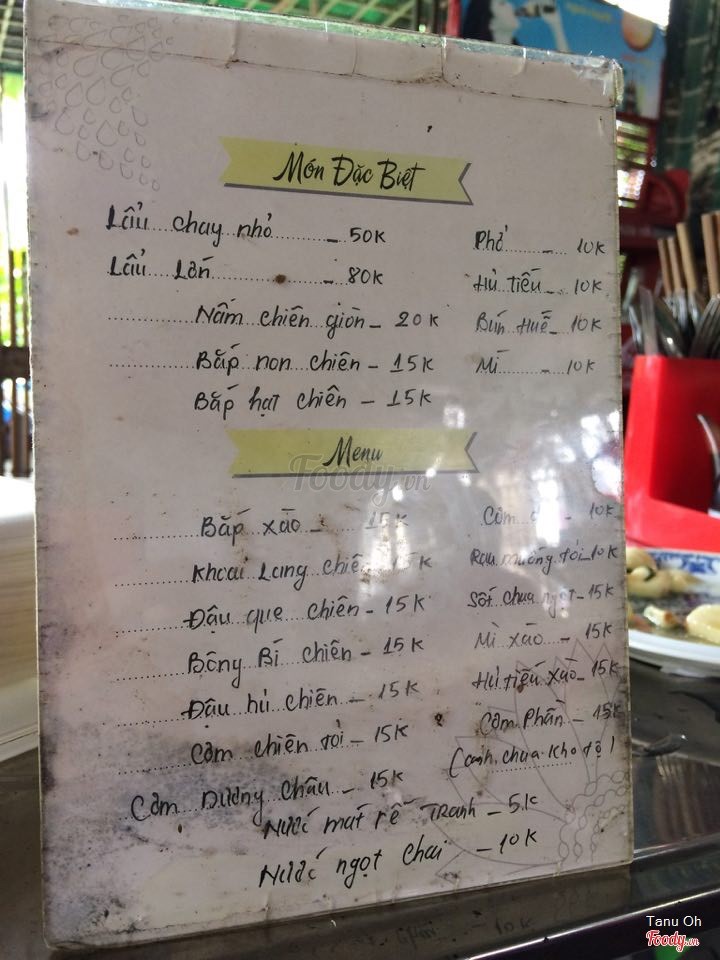 Món Đặc Biệt
Lẩu chay nhỏ - 50K
Lẩu Lớn - 80K
Nấm chiên giòn - 20K
Bắp non chiên - 15K
Bắp hạt chiên - 15K
Phở - 10K
Hủ tiếu - 10K
Bún Huế - 10K
Mì - 10K
Menu
Bắp xào - 15K
Khoai Lang chiên 15K
Đậu que chiên - 15K
Bông Bí chiên - 15K
Đậu hủ chiên - 15K
Cơm chiên tỏi - 15K
Cơm Dương Châu - 15K
Cơm - 10K
Rau muống tỏi - 10K
Sốt chua ngọt - 15K
Mì xào - 15K
Hủ tiếu xào - 15K
Cơm Phần - 15K
(canh chua kho tộ)
Nước mát rễ Tranh - 5K
Nước ngọt chai - 10K
Foody.vn
Tanu Oh
Foody.vn